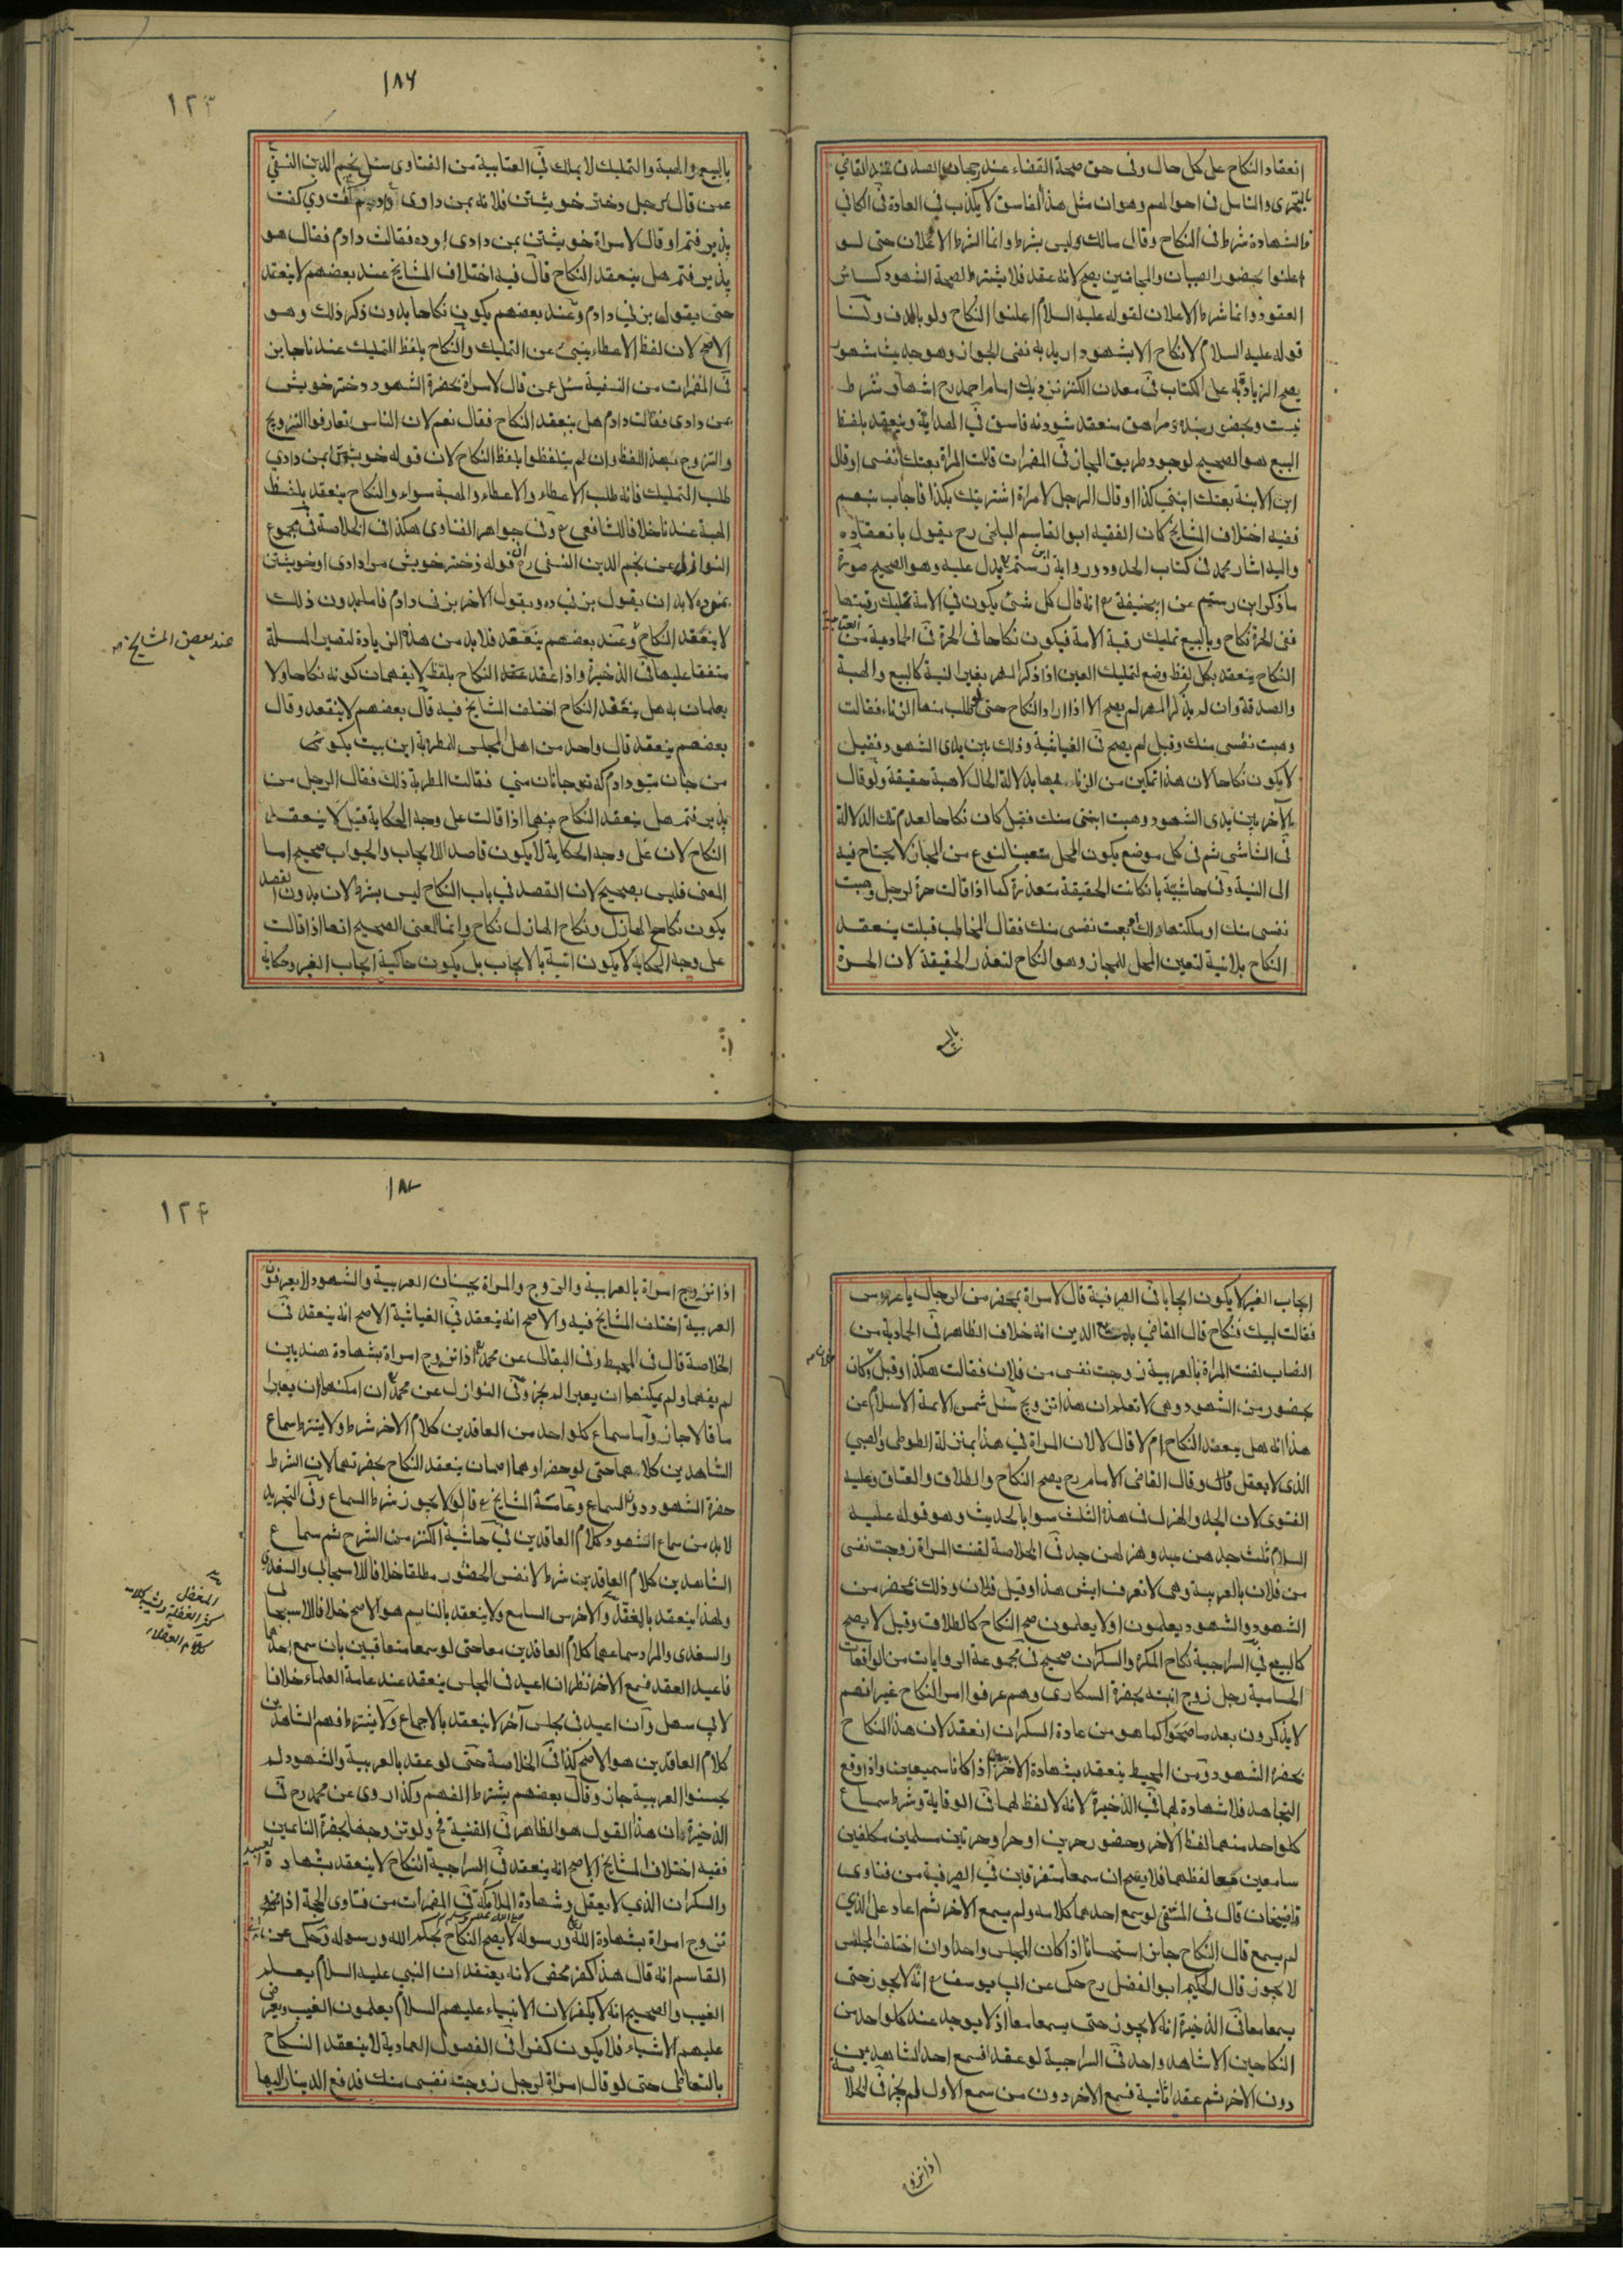 ١٨٦
١٢٣
انعقاد النكاح على كل حال وفي حق صحة القضاء عند رجحان الصدق عند القاضي
بالتحرى والتامل في احوالهم وهوان مثل هذا الفاسق لا يكذب في العادة في الكافي
فالشهادة شرط في النكاح وقال مالك وليس بشرط وانما الشرط الاعلان حتى لو
اعلنوا بحضور الصبيان والمجانين يصح لانه عقد فلا يشترط لصحة الشهود كسائر
العقود وانما شرط الاعلان لقوله عليه السلام اعلنوا النكاح ولو بالدف ولنا
قوله عليه السلام لا نكاح الا بشهود اريد به نفى الجواز وهو حديث مشهور
يصح الزيادة به على الكتاب في معدن الكنز نزديك امام احمد رح اشهاد شرط
نيست وبحضور بنده ومراهق منعقد شود نه فاسق في الهداية وينعقد بلفظ
البيع هو الصحيح لوجود طريق المجاز في المضمرات قالت المراة بعتك نفسى او قال
ابن الابنة بعتك ابنتي كذا او قال الرجل لامراة اشتريتك بكذا فاجاب بنعم
ففيه اختلاف المشايخ كان الفقيه ابو القاسم البلخى رح يقول بانعقاده
واليه اشار محمد في كتاب الحدود ورواية ابن رستم يدل عليه وهو الصحيح صورة
ما ذكر ابن رستم عن ابيحنيفة رح انه قال كل شئ يكون في الامة تمليك رقبتها
ففى الحرة نكاح وبالبيع تمليك رقبة الامة فيكون نكاحا في الحرة في الحمادية من
النكاح ينعقد بكل لفظ وضع لتمليك العين اذا ذكر المهر بغير النية كالبيع والهبة
والصدقة وان لم يذكر المهر لم يصح الا اذا اراد النكاح حتى لو طلب منها الزناء فقالت
وهبت نفسى منك وقبل لم يصح في الغياثية وذلك بين يدى الشهود فقيل
لا يكون نكاحا لان هذا تمكين من الزناء بها بدلالة الحال لا هبة حقيقة ولو قال
لآخر بين يدى الشهود وهبت ابنتى منك فقبل كان نكاحا لعدم تلك الدلالة
في الشاشى ثم في كل موضع يكون المحل متعينا لنوع من المجاز لا يحتاج فيه
الى النية وفي حاشيته بان كانت الحقيقة متعذرة كما اذا قالت حرة لرجل وهبت
نفسى منك او ملكتها لك او بعت نفسى منك فقال المخاطب قبلت ينعقد
النكاح بلانية لتعين المحل للمجاز وهو النكاح لتعذر الحقيقة لان الحرة
بالبيع
بالبيع والهبة والتمليك لا يملك في العتابية من الفتاوى سئل نجم الدين النسفي
عمن قال لرجل دختر خويشتن فلانه بمن دادى گفت وي گفت
پذيرفتم او قال لامراة خويشتن بمن دادى او ده فقالت دادم فقال هو
پذيرفتم هل ينعقد النكاح قال فيه اختلاف المشايخ عند بعضهم لا ينعقد
حتى يقول بزني دادم وعند بعضهم يكون نكاحا بدون ذكر ذلك وهو
الاصح لان لفظ الاعطاء ينبئ عن التمليك والنكاح بلفظ التمليك عندنا جايز
في المضمرات من النسفية سئل عمن قال لامراة بحضرة الشهود دختر خويش
بمن دادى فقالت دادم هل ينعقد النكاح فقال نعم لان الناس تعارفوا التزويج
والتزوج بهذا اللفظ وان لم يتلفظوا بلفظ النكاح لان قوله خويشتن بمن دادي
طلب التمليك فانه طلب الاعطاء والاعطاء والهبة سواء والنكاح ينعقد بلفظ
الهبة عندنا خلافا للشافعى رح وفي جواهر الفتاوى هكذا في الخلاصة في مجموع
النوازل عن نجم الدين النسفى رح ان قوله دختر خويش مرا دادى او خويشتن
بمن ده لا بد ان يقول بزنى ده ويقول الآخر بزنى دادم فاما بدون ذلك
لا ينعقد النكاح وعند بعضهم ينعقد فلا بد من هذه الزيادة لتصير المسئلة
عند بعض المشايخ
متفقا عليها في الذخيرة واذا عقد عقد النكاح بلفظ لا يفهمان كونه نكاحا ولا
يعلمان به هل ينعقد النكاح اختلف المشايخ فيه قال بعضهم لا ينعقد وقال
بعضهم ينعقد قال واحد من اهل المجلس للمطربة اين بيت بكو شعر
من جان بتو دادم كه تو جانان منى فقالت المطربة ذلك فقال الرجل من
پذيرفتم هل ينعقد النكاح بينهما اذا قالت على وجه الحكاية قيل لا ينعقد
النكاح لان على وجه الحكاية لا يكون قاصدا للايجاب والجواب صحيح اما
المعنى فليس بصحيح لان القصد في باب النكاح ليس بشرط لان بدون القصد
يكون نكاح الهازل ونكاح الهازل نكاح وانما المعنى الصحيح انها اذا قالت
على وجه الحكاية لا يكون اتية بالايجاب بل يكون حاكية ايجاب الغير وحكاية
١٨٧
١٢۴
ايجاب الغير لا يكون ايجابا في الصرفية قال لامراة بمحضر من الرجال يا عروس
فقالت لبيك فنكاح قال القاضي بديع الدين انه خلاف الظاهر في الحمادية من
النصاب لقنت المراة بالعربية زوجت نفسى من فلان فقالت هكذا وقبل وكان
بحضور من الشهود وهى لا تعلم ان هذا تزويج سئل شمس الائمة الاسلام عن
هذا انه هل ينعقد النكاح ام لا قال لا لان المراة في هذا بمنزلة الطوطى والصبي
الذى لا يعقل قال وقال القاضى الامام رح يصح النكاح والطلاق والعتاق وعليه
الفتوى لان الجد والهزل في هذه الثلث سوا بالحديث وهو قوله عليه
السلام ثلث جدهن جد وهزلهن جد في الخلاصة لقنت المراة زوجت نفسى
من فلان بالعربية وهى لا تعرف ايش هذا وقبل فلان وذلك بمحضر من
الشهود والشهود يعلمون اولا يعلمون صح النكاح كالطلاق وقيل لا يصح
كالبيع في السراجية نكاح المكره والسكران صحيح في مجموعة الروايات من الواقعات
الحسامية رجل زوج ابنته بحضرة السكارى وهم عرفوا امر النكاح غير انهم
لا يذكرون بعد ما صحوا كما هو من عادة السكران انعقد لان هذا النكاح
بحضرة الشهود ومن المحيط ينعقد بشهادة الاخرسين اذا كانا سميعين واذا وقع
التجاحد فلا شهادة لهما في الذخيرة لانه لا لفظ لهما في الوقاية وشرط سماع
كل واحد منهما لفظ الآخر وحضور حرين او حر وحرتين مسلمين مكلفين
سامعين معا لفظهما فلا يصح ان سمعا متفرقين في الصرفية من فتاوى
قاضيخان قال في المنتقى لو سمع احدهما كلامه ولم يسمع الآخر ثم اعاد على الذي
لم يسمع قال النكاح جايز استحسانا اذا كان المجلس واحدا وان اختلف المجلس
لا يجوز قال الحكيم ابو الفضل رح حكى عن ابي يوسف رح انه لا يجوز حتى
يسمعا معا في الذخيرة انه لا يجوز حتى يسمعا معا اذ لا يوجد عند كل واحد من
النكاحين الا شاهد واحد في السراجية لو عقد افسمع احد الشاهدين
دون الآخر ثم عقد ثانية فسمع الآخر دون من سمع الاول لم يجز في الخلاصة
اذا تزوج
اذا تزوج امراة بالعربية والزوج والمراة يحسنان العربية والشهود لا يعرفون
العربية اختلف المشايخ فيه والاصح انه ينعقد في الغياثية الاصح انه ينعقد في
الخلاصة قال في المحيط وفي البقالى عن محمد رح اذا تزوج امراة بشهادة هنديين
لم يفهما ولم يمكنهما ان يعبرا لم يجز وفي النوازل عن محمد رح ان امكنهما ان يعبرا
ما قالا جاز واما سماع كل واحد من العاقدين كلام الآخر شرط ولا يشترط سماع
الشاهدين كلامهما حتى لو حضر اوهما اصمان ينعقد النكاح بحضرتهما لان الشرط
حضرة الشهود دون السماع وعامة المشايخ رح قالوا لا يجوز شرط السماع وفي التجريد
لا بد من سماع الشهود كلام العاقدين في حاشية الكنز من الشرح ثم سماع
الشاهدين كلام العاقدين شرط لا نفس الحضور مطلقا خلافا للاسبيجابى والسغدى
ولهذا ينعقد بالمغفل والاخرس السامع ولا ينعقد بالنايم هو الاصح خلافا للاسبيجابى
المغفل
كثير الغفلة
كلام العقلاء
والسغدى والمراد سماعهما كلام العاقدين معا حتى لو سمعا متعاقبين بان سمع احدهما
فاعيد العقد فسمع الآخر نظر ان اعيد في المجلس ينعقد عند عامة العلماء خلافا
لابي سهل وان اعيد في مجلس آخر لا ينعقد بالاجماع ولا يشترط فهم الشاهدين
كلام العاقدين هو الاصح كذا في الخلاصة حتى لو عقد بالعربية والشهود لم
يحسنوا العربية جاز وقال بعضهم يشترط الفهم وكذا روى عن محمد رح في
الذخيرة ان هذا القول هو الظاهر في القنية ولو تزوجها بحضرة النائمين
ففيه اختلاف المشايخ الاصح انه ينعقد في السراجية النكاح لا ينعقد بشهادة العبيد
والسكران الذي لا يعقل وشهادة الملائكة في المضمرات من فتاوى الحجة اذا
تزوج امراة بشهادة الله ورسوله لا يصح النكاح بحكم الله ورسوله وحكى عن ابى
القاسم انه قال هذا كفر محض لانه يعتقد ان النبي عليه السلام يعلم
الغيب والصحيح انه لا يكفر لان الانبياء عليهم السلام يعلمون الغيب ويعرض
عليهم الاشياء فلا يكون كفرا في الفصول العمادية لا ينعقد النكاح
بالتعاطى حتى لو قال امراة لرجل زوجت نفسى منك فدفع الدينار اليها